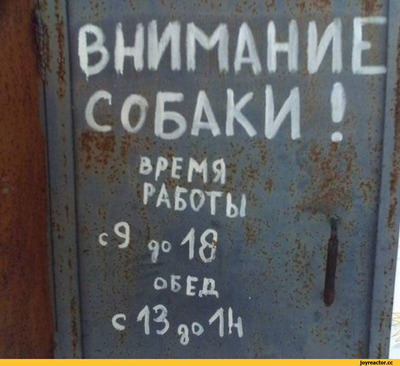 ВНИМАНИЕ
СОБАКИ !
ВРЕМЯ
РАБОТЫ
с 9 до 18
ОБЕД
с 13 до 14
joyreactor.cc